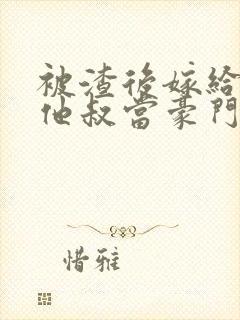 被渣後嫁給
他叔當豪門
惜雅